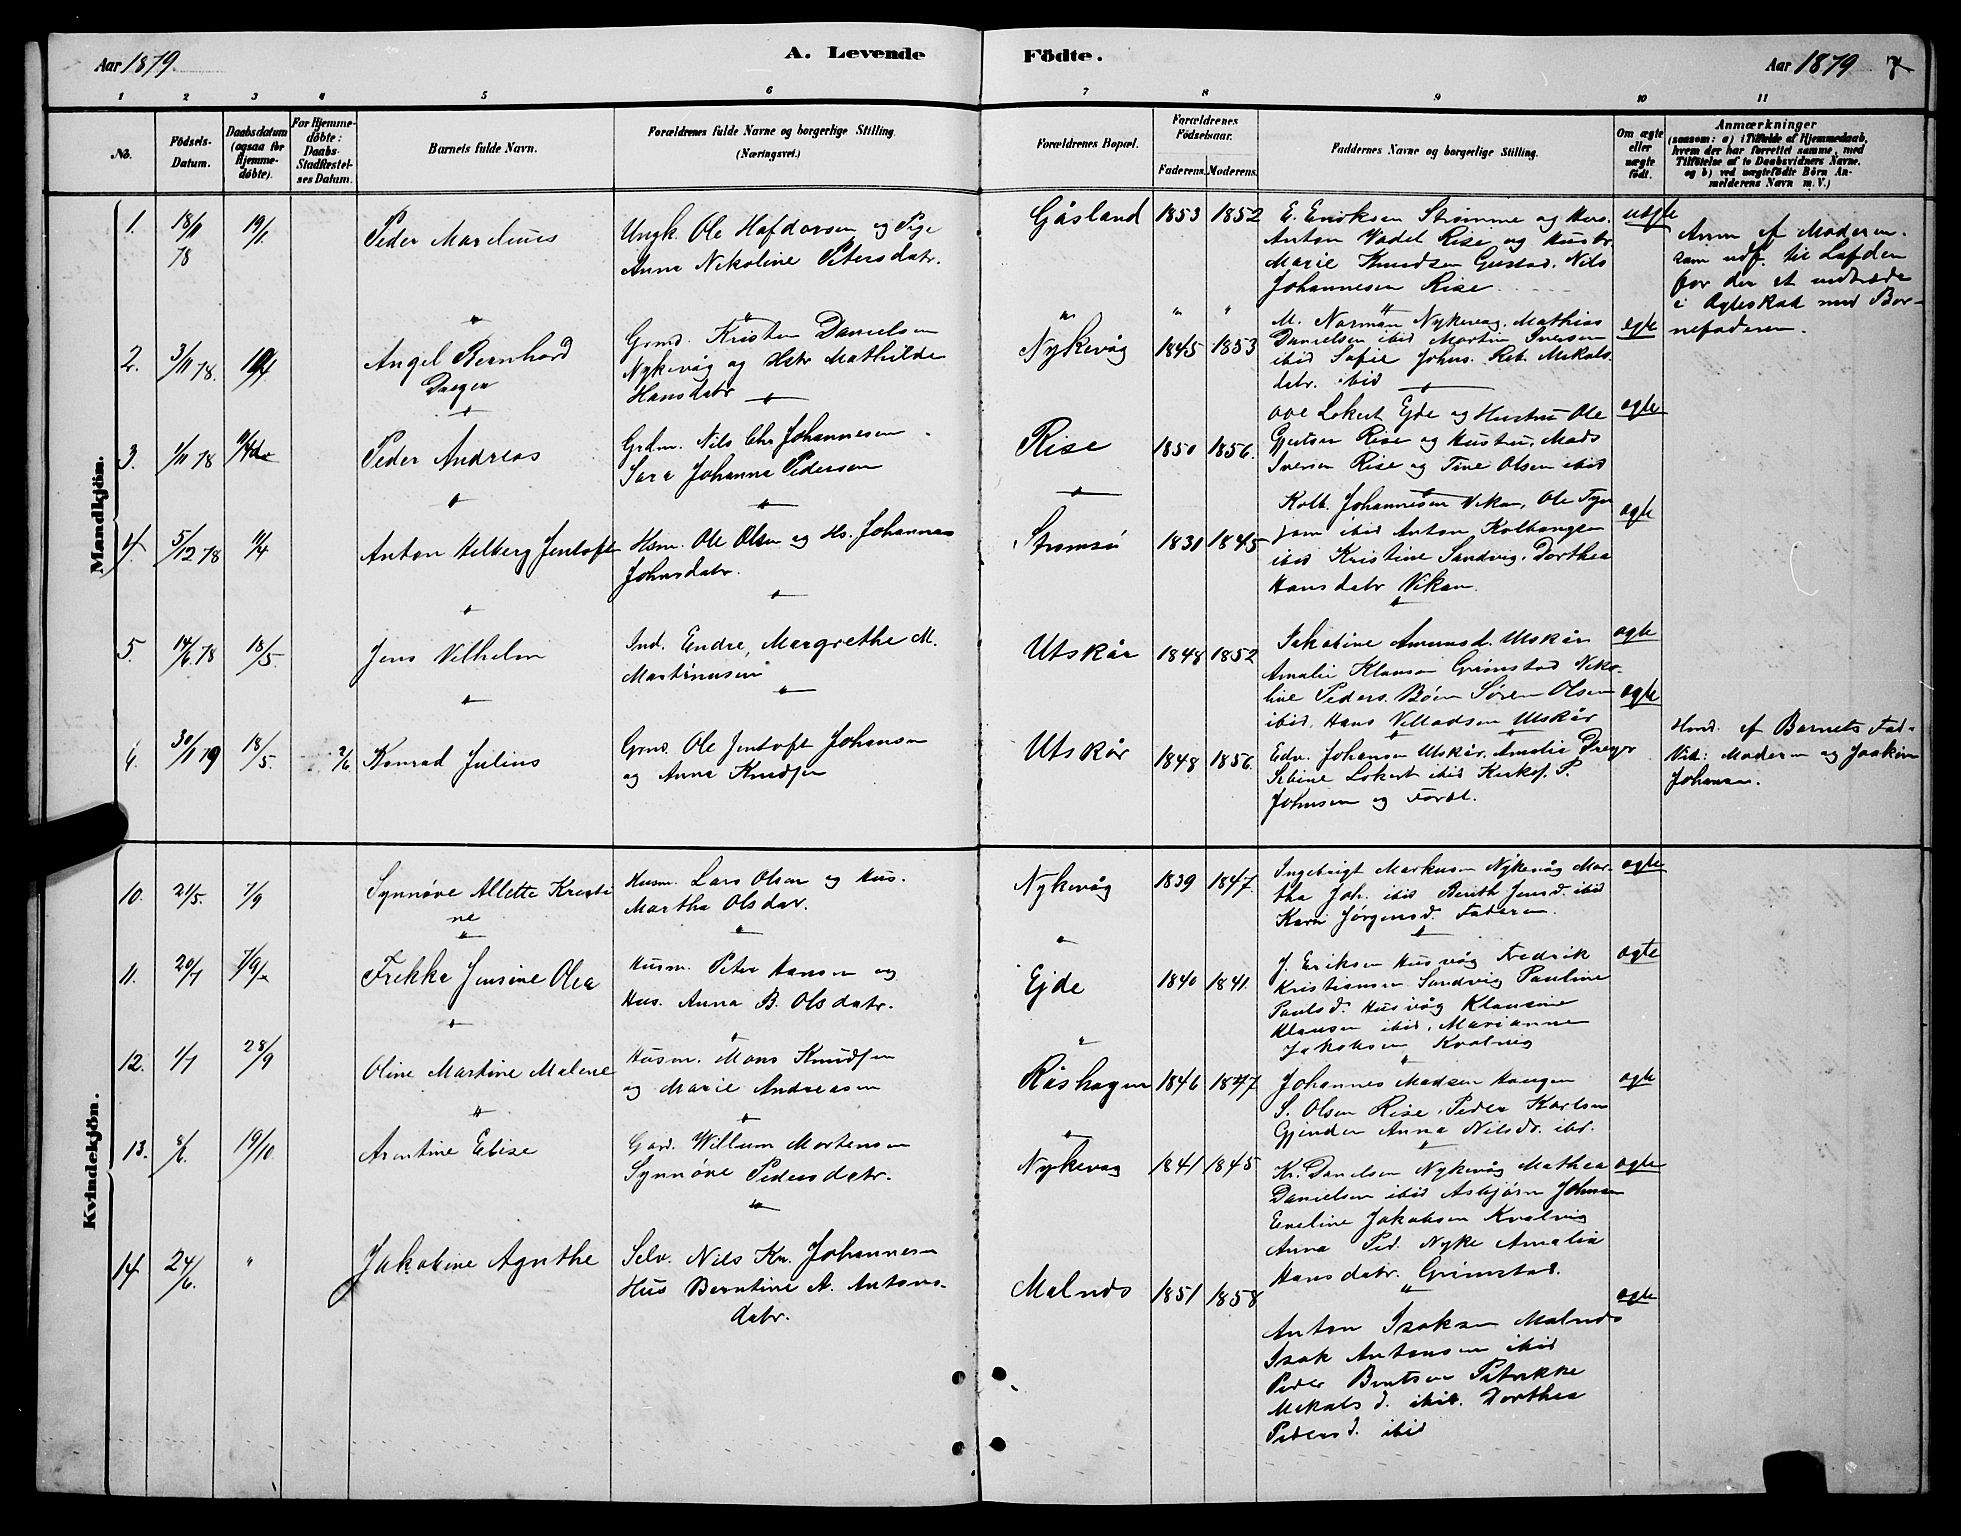 Aar 1879
A. Levende Födte.
Aar 1879 7
1 2 3 4 5 6 7 8 9 10 11
No.
Födsels-Datum.
Daabsdatum (ogsaa for Hjemme-döbte).
For Hjemme-döbte: Daabs-Stadfæstel-ses Datum.
Barnets fulde Navn.
Forældrenes fulde Navne og borgerlige Stilling. (Næringsvei.)
Forældrenes Bopæl.
Forældrenes Födselsaar.
Faderens. Moderens.
Faddernes Navne og borgerlige Stilling.
Om ægte eller uægte födt.
Anmærkninger
(saasom: a) i Tilfælde af Hjemmedaab, hvem der har forrettet samme, med Tilföielse af to Daabsvidners Navne. og b) ved uægtefödte Börn An-melderens Navn m. V.)
Mandkjön.
1. 18/11 78 19/1. Peder Marelius
Ungk. Ole Hafdorsen og Pige
Anna Nikoline Petersdatr.
Gåsland 1853 1852
E. Eriksen Strømme og Hus.
Anton Vadel Rise og Hustr.
Marie Knudsen Gustad. Nils
Johannesen Rise
uægte
Anm af Moderen.
som udf. til Lofoden
for der at indtræde
i Ægteskab med Bar-
nefaderen.
2. 3/11 78. Angel Bernhard
Grmd. Kristen Danielsen
Nykevåg og Hstr Mathilde
Hansdatr
Nykevåg 1845 1853
M. Norman Nykevaag. Mathias
Danielsen ibid Martin Iversen
ibid Sofie Johns. Reb. Mikals
datr. ibid
egte
3. 1/11 78 Peder Andreas
Grdm. Nils Chr Johannesen
Sara Johanna Pedersen
Rise 1850 1856.
Ove Lokert Ejde og Hustru Ole
Gjertsen Rise og Hustru. Mads
Iversen Rise og Tine Olsen ibid
ægte
4. 5/12 78 11/4 Anton Helberg Jentoft
Hsm. Ole Olsen og Hs. Johannes
Johnsdatr.
Strømsø 1830 1845
Kolb. Johannesen Vikan, Ole Tyn
ibid Anton Kolbangsen
ibid Kristine Sandvig. Dorthea
Hansdatr Vikan.
ægte
5. 14/6 78 18/5. Jens Vilhelm
Ind. Endre, Margrethe M.
Martinusen
Utskår 1848 1852
Jakobine Amunsd. Utskår
Amalie Klausen Grimstad Niko-
line Peders. Bøen Søren Olsen
ibid. Hans Villadsen Utskår
ægte
6. 30/1 79 18/5. 2/6 Konrad Julius
Grmd. Ole Jentoft Johansen
og Anna Knudsen
Utskår 1848 1856.
Edv. Johansen Utskår. Amalie Dreyer
Sibine Lokert ibid Kirkes. P.
Johnsen og Fordl.
ægte
Hmd. af Barnets Fad-
Vid: Moderen og Joakim
Johansen.
Kvindekjön.
10. 21/5. 7/9 Synnøve Allette Kristi
ne
Husm. Lars Olsen og Hus.
Martha Olsdatr.
Nykevåg 1839 1847.
Ingebrigt Markusen Nykevåg Mar-
tha Joh. ibid Berith Jensd. ibid
Karn Jørgensd. Faderen.
ægte
11. 20/7 7/9 Frekka Jensine Olea
Husm. Peter Hansen og
Hus. Anna B. Olsdatr.
Ejde 1840 1841.
J. Eriksen Husvåg Fredrik
Kristiansen Sandvig Pauline
Paulsd. Husvåg Klausine
Klausen ibid. Marianne
Jakobsen Kvalvig
ægte
12. 1/7 28/9 Oline Martine Malene
Husm. Mons Knudsen
og Marie Andreasen
Råshagen 1846 1847
Johannes Madsen Haugen
S. Olsen Rise. Peder Karlsen
Gjerden Anna Nilsdr. ibd.
ægte
13. 8/6. 19/10. Arntine Elise
Gard. Willum Mortensen
Synnøve Pedersdatr.
Nykevåg 1841 1845
Kr. Danielsen Nykevåg Mathea
Danielsen ibid Asbjørn Johnsen
Eveline Jakobsen Kvalvig
Anna Ped. Nyke Amalia
Hansdatr. Grimstad.
ægte
14. 24/6. " Jakobine Agnthe
Selv. Nils Kn. Johannesen
Hus Berntine A. Antons-
datr.
Malnæs 1851 1858
Anton Isaksen Malnæs
Isak Antonsen ibid
Peder Bentsen Petrikke
Mikals d. ibid. Dorthea
Pedersd. ibid
ægte